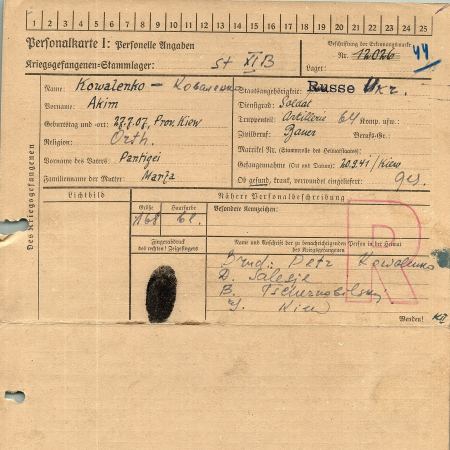 1 2 3 4 5 6 7 8 9 10 11 12 13 14 15 16 17 18 19 20 21 22 23 24 25
Personalkarte I: Personelle Angaben
Kriegsgefangenen-Stammlager: St XI B
Beschriftung der Erkennungsmarke
Nr. 12026 44
Lager:
Des Kriegsgefangenen
Name: Kowalenko –
Vorname: Akim
Geburtstag und -ort: 27.7.07, Prov. Kiew
Religion: Orth.
Vorname des Vaters: Pantigei
Familienname der Mutter: Marja
Staatsangehörigkeit: Russe Ukr.
Dienstgrad: Soldat
Truppenteil: Artillerie 64 Komp. usw.:
Zivilberuf: Bauer Berufs-Gr.:
Matrikel Nr. (Stammrolle des Heimatstaates):
Gefangennahme (Ort und Datum): 20.9.41 / Kiew
Ob gesund, krank, verwundet eingeliefert: ges.
Lichtbild
Nähere Personalbeschreibung
Größe
Haarfarbe
Besondere Kennzeichen:
1,68
bl.
Fingerabdruck
des rechten! Zeigefingers
Name und Anschrift der zu benachrichtigenden Person in der Heimat
des Kriegsgefangenen
R
Brud: Petr Kowalenko
D. Salesje
B. Tschernobilski
G. Kiew
Wenden!